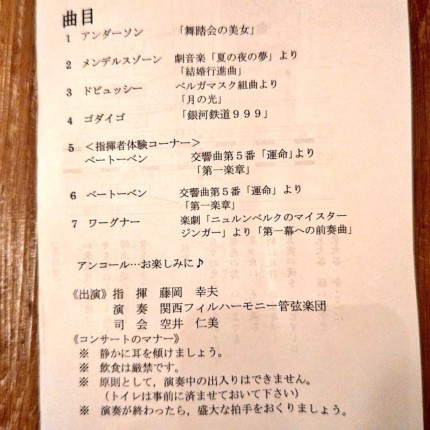 曲目
1 アンダーソン 「舞踏会の美女」
2 メンデルスゾーン 劇音楽「夏の夜の夢」より
「結婚行進曲」
3 ドビュッシー ベルガマスク組曲より
「月の光」
4 ゴダイゴ 「銀河鉄道９９９」
5 ＜指揮者体験コーナー＞
ベートーベン 交響曲第５番「運命」より
「第一楽章」
6 ベートーベン 交響曲第５番「運命」より
「第一楽章」
7 ワーグナー 楽劇「ニュルンベルクのマイスター
ジンガー」より「第一幕への前奏曲」
アンコール…お楽しみに♪
《出演》指 揮 藤岡 幸夫
演 奏 関西フィルハーモニー管弦楽団
司 会 空井 仁美
《コンサートのマナー》
※ 静かに耳を傾けましょう。
※ 飲食は厳禁です。
※ 原則として，演奏中の出入りはできません。
（トイレは事前に済ませておいて下さい）
※ 演奏が終わったら，盛大な拍手をおくりましょう。